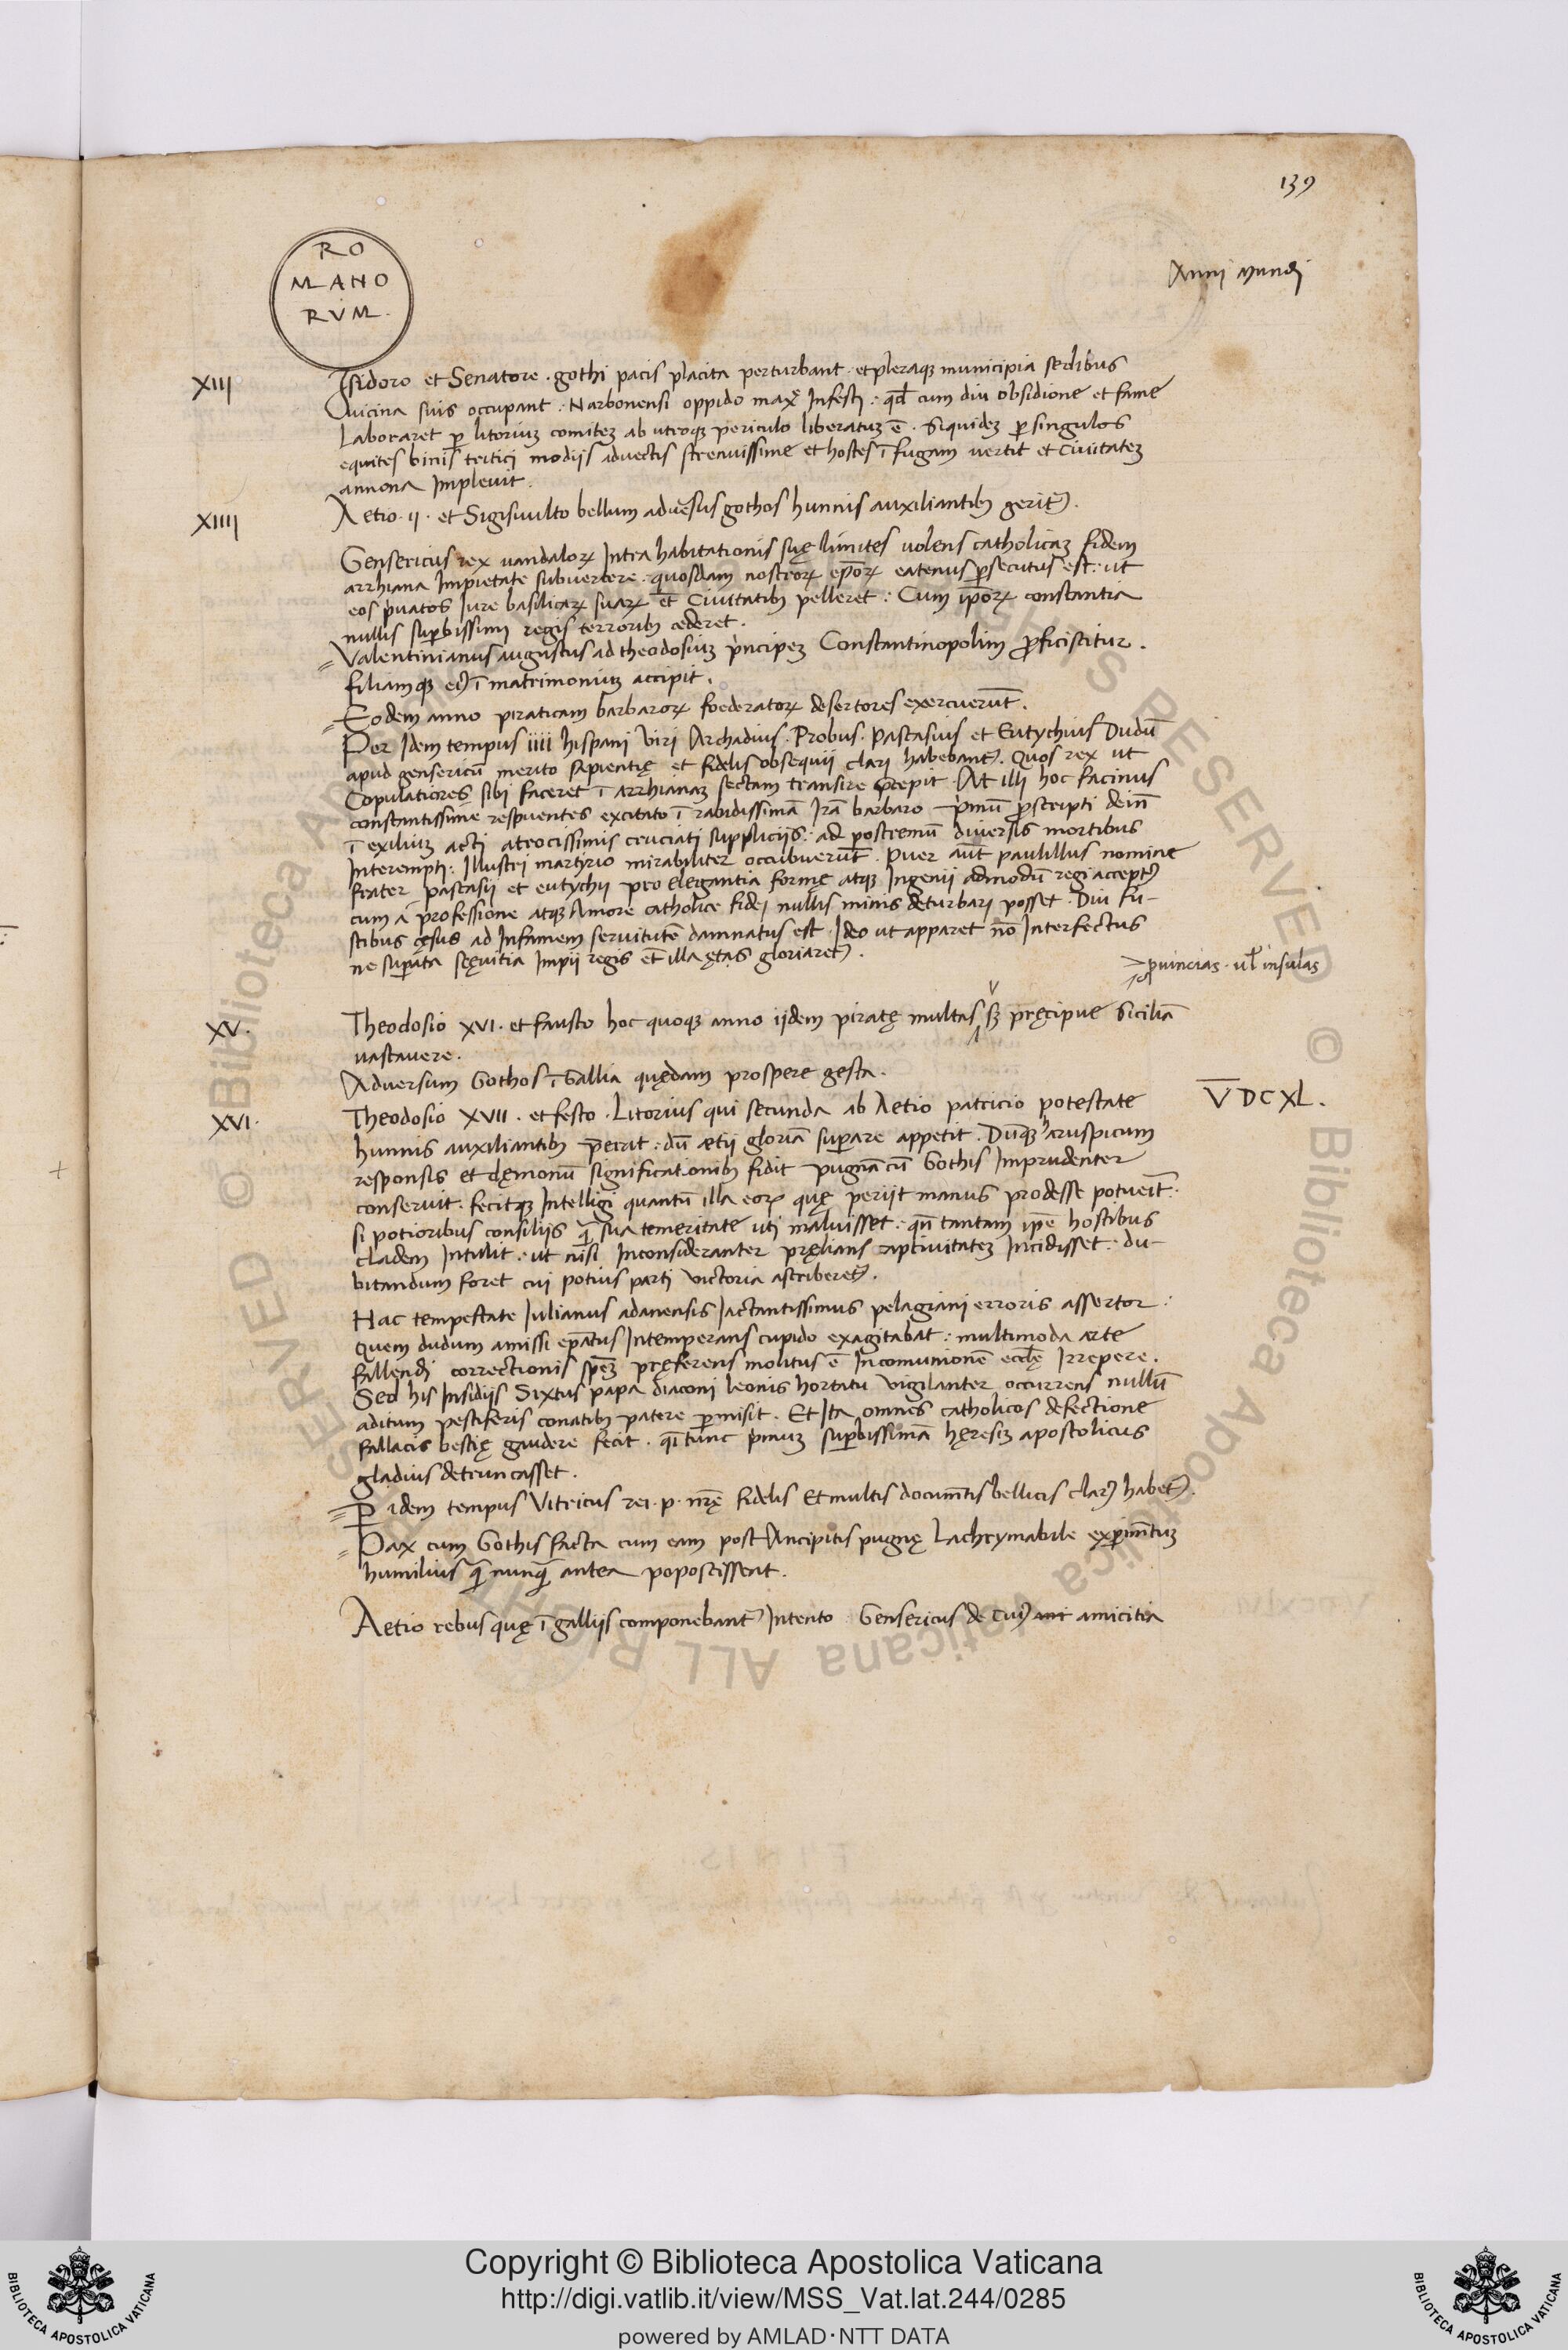 139
RO
MANO
RVM.
Anni mundi
XIII
Isidoro et Senatore . gothi pacis placita perturbant . et pleraqꝫ municipia sedibus
vicina suis occupant : Narbonensi oppido maxͤ Infesti : qđ cum diu obsidione et fame
Laboraret ꝑ litoriuꝫ comiteꝫ ab utroqꝫ periculo liberatuꝫ ē . Siquideꝫ ꝑ singulos
equites binis tritici modiis advectis strenuissime et hostes ī fugam vertit et civitateꝫ
annona Implevit .
XIIII
Aetio . ii . et Sigisvulto bellum adversus gothos hunnis auxiliantibꝰ gerit᷑ .
Gensericus rex vandaloꝝ Intra habitationis suę limites volens catholicaꝫ fidem
arrhiana Impietate subvertere . quosdam nostroꝝ ep̄oꝝ eatenus ꝑsecutus est . ut
eos privatos Iure basilicaꝝ suaꝝ et̄ Civitatibꝰ pelleret : Cum ip̄oꝝ constantia
nullis suꝑbissimi regis terroribꝰ cederet .
Valentinianus augustus ad theodosiuꝫ principeꝫ Constantinopolim ꝓficiscitur .
filiamqꝫ eiꝰ ī matrimoniuꝫ accipit .
Eodem anno piraticam barbaroꝝ foederatoꝝ desertores exercuerūt .
Per Idem tempus iiii hispani viri Archadius . Probus . Pascasius et Eutychius Dudū
apud gensericū merito sapientię et fidelis obsequii clari habebant᷑ . Quos rex ut
Copulatiores sibi faceret ī arrhianaꝫ sectam transire p̄cepit . At illi hoc facinus
constantissime respuentes excitato ī rabidissimā Irā barbaro primū ꝓscripti dein̄
ī exiliuꝫ acti atrocissimis cruciati suppliciis : ad postremū diversis mortibus
Interempti : Illustri martyrio mirabiliter occubuerūt . Puer aut̄ paulillus nomine
frater pascasii et eutychii pro elegantia formę atqꝫ Ingenii admodū regi acceptꝰ
cum a professione atqꝫ Amore catholice fidei nullis minis deturbari posset . Diu fu-
stibus cęsus ad Infamem servitutē damnatus est . Ideo ut apparet nō Interfectus
ne suꝑata sęvitia Impii regis et̄ illa ętas gloriaret᷑ .
ꝓvincias . ul̄ insulas
XV.
Theodosio XVI . et fausto hoc quoqꝫ anno iidem piratę multas sꝫ pręcipue Siciliā
vastavere .
Adversum Gothos ī Gallia quędam prospere gesta .
V̄ DCXL .
XVI.
Theodosio XVII . et festo . Litorius qui secunda ab Aetio patricio potestate
hunnis auxiliantibꝰ p̄erit : dū aetii gloriā suꝑare appetit . Dūqꝫ haruspicum
responsis et dęmonū significationibꝰ fidit pugnā cū Gothis Imprudenter
conseruit . fecitqꝫ Intelligi quantū illa eoꝝ quę periit manus prodesse potuerit̄ :
si potioribus consiliis q̄ sua temeritate uti maluisset : qn̄ tantam ip̄e hostibus
cladem Intulit . ut nisi Inconsideranter pręlians captivitateꝫ Incidisset : du-
bitandum foret cui potius parti victoria ascriberet᷑ .
Hac tempestate Iulianus adanensis Iactantissimus pelagiani erroris assertor :
quem dudum amissi ep̄atus Intemperans cupido exagitabat : multimoda arte
fallendi correctionis spēꝫ pręferens molitus ē In comunionē eccl̄ę Irrepere .
Sed his Insidiis Sixtus papa diaconi leonis hortatu vigilanter occurrens nullū
aditum pestiferis conatibꝰ patere ꝑmisit . Et Ita omnes catholicos defectione
fallacis bestię gaudere fecit . qͣi tunc primuꝫ suꝑbissimā hęresiꝫ apostolicus
gladius detruncasset .
ꝑ idem tempus Vitricus rei . p . nr̄ę fidelis Et multis documn̄tis bellicis clarꝰ habet᷑ .
Pax cum Gothis facta cum eam post Ancipitis pugnę Lachrymabile exꝑimn̄tuꝫ
humilius q̄ nunq̄ antea poposcissent .
Aetio rebus quę ī galliis componebant᷑ Intento . Gensericus de cuiꝰ amicitia